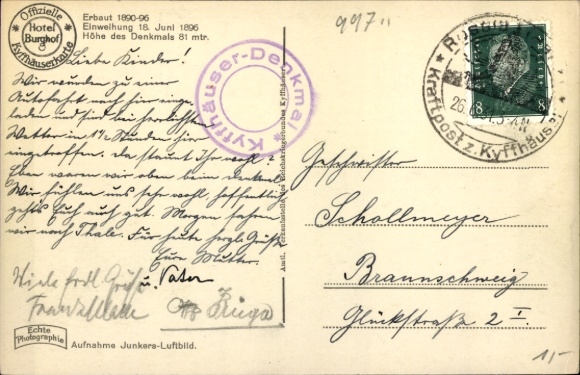 Offizielle
Hotel
Burghof
Kyffhäuserkarte
Erbaut 1890-96
Einweihung 18. Juni 1896
Höhe des Denkmals 81 mtr.
997
Liebe Kinder!
Wir wurden zu einer
Autofahrt nach hier einge-
laden und sind bei herrlichstem
Wetter in 1½ Stunden hier
eingetroffen. da staunt Ihr wohl?
Eben waren wir oben beim Denkmal
Wir fühlen uns sehr wohl, hoffentlich
gehts Euch auch gut. Morgen fahren
wir nach Thale. Für heute herzl. Grüße
Eure Mutter.
u. Vater
Viele frdl. Grüße
Kyffhäuser-Denkmal
Amtl. Verkaufsstelle des Reichskriegerbundes Kyffhäuser
Kraftpost z. Kyffhäuser
26.
8 8
Geschwister
Schollmeyer
Braunschweig
Glückstraße 2 I.
Echte
Photographie
Aufnahme Junkers-Luftbild.
11-